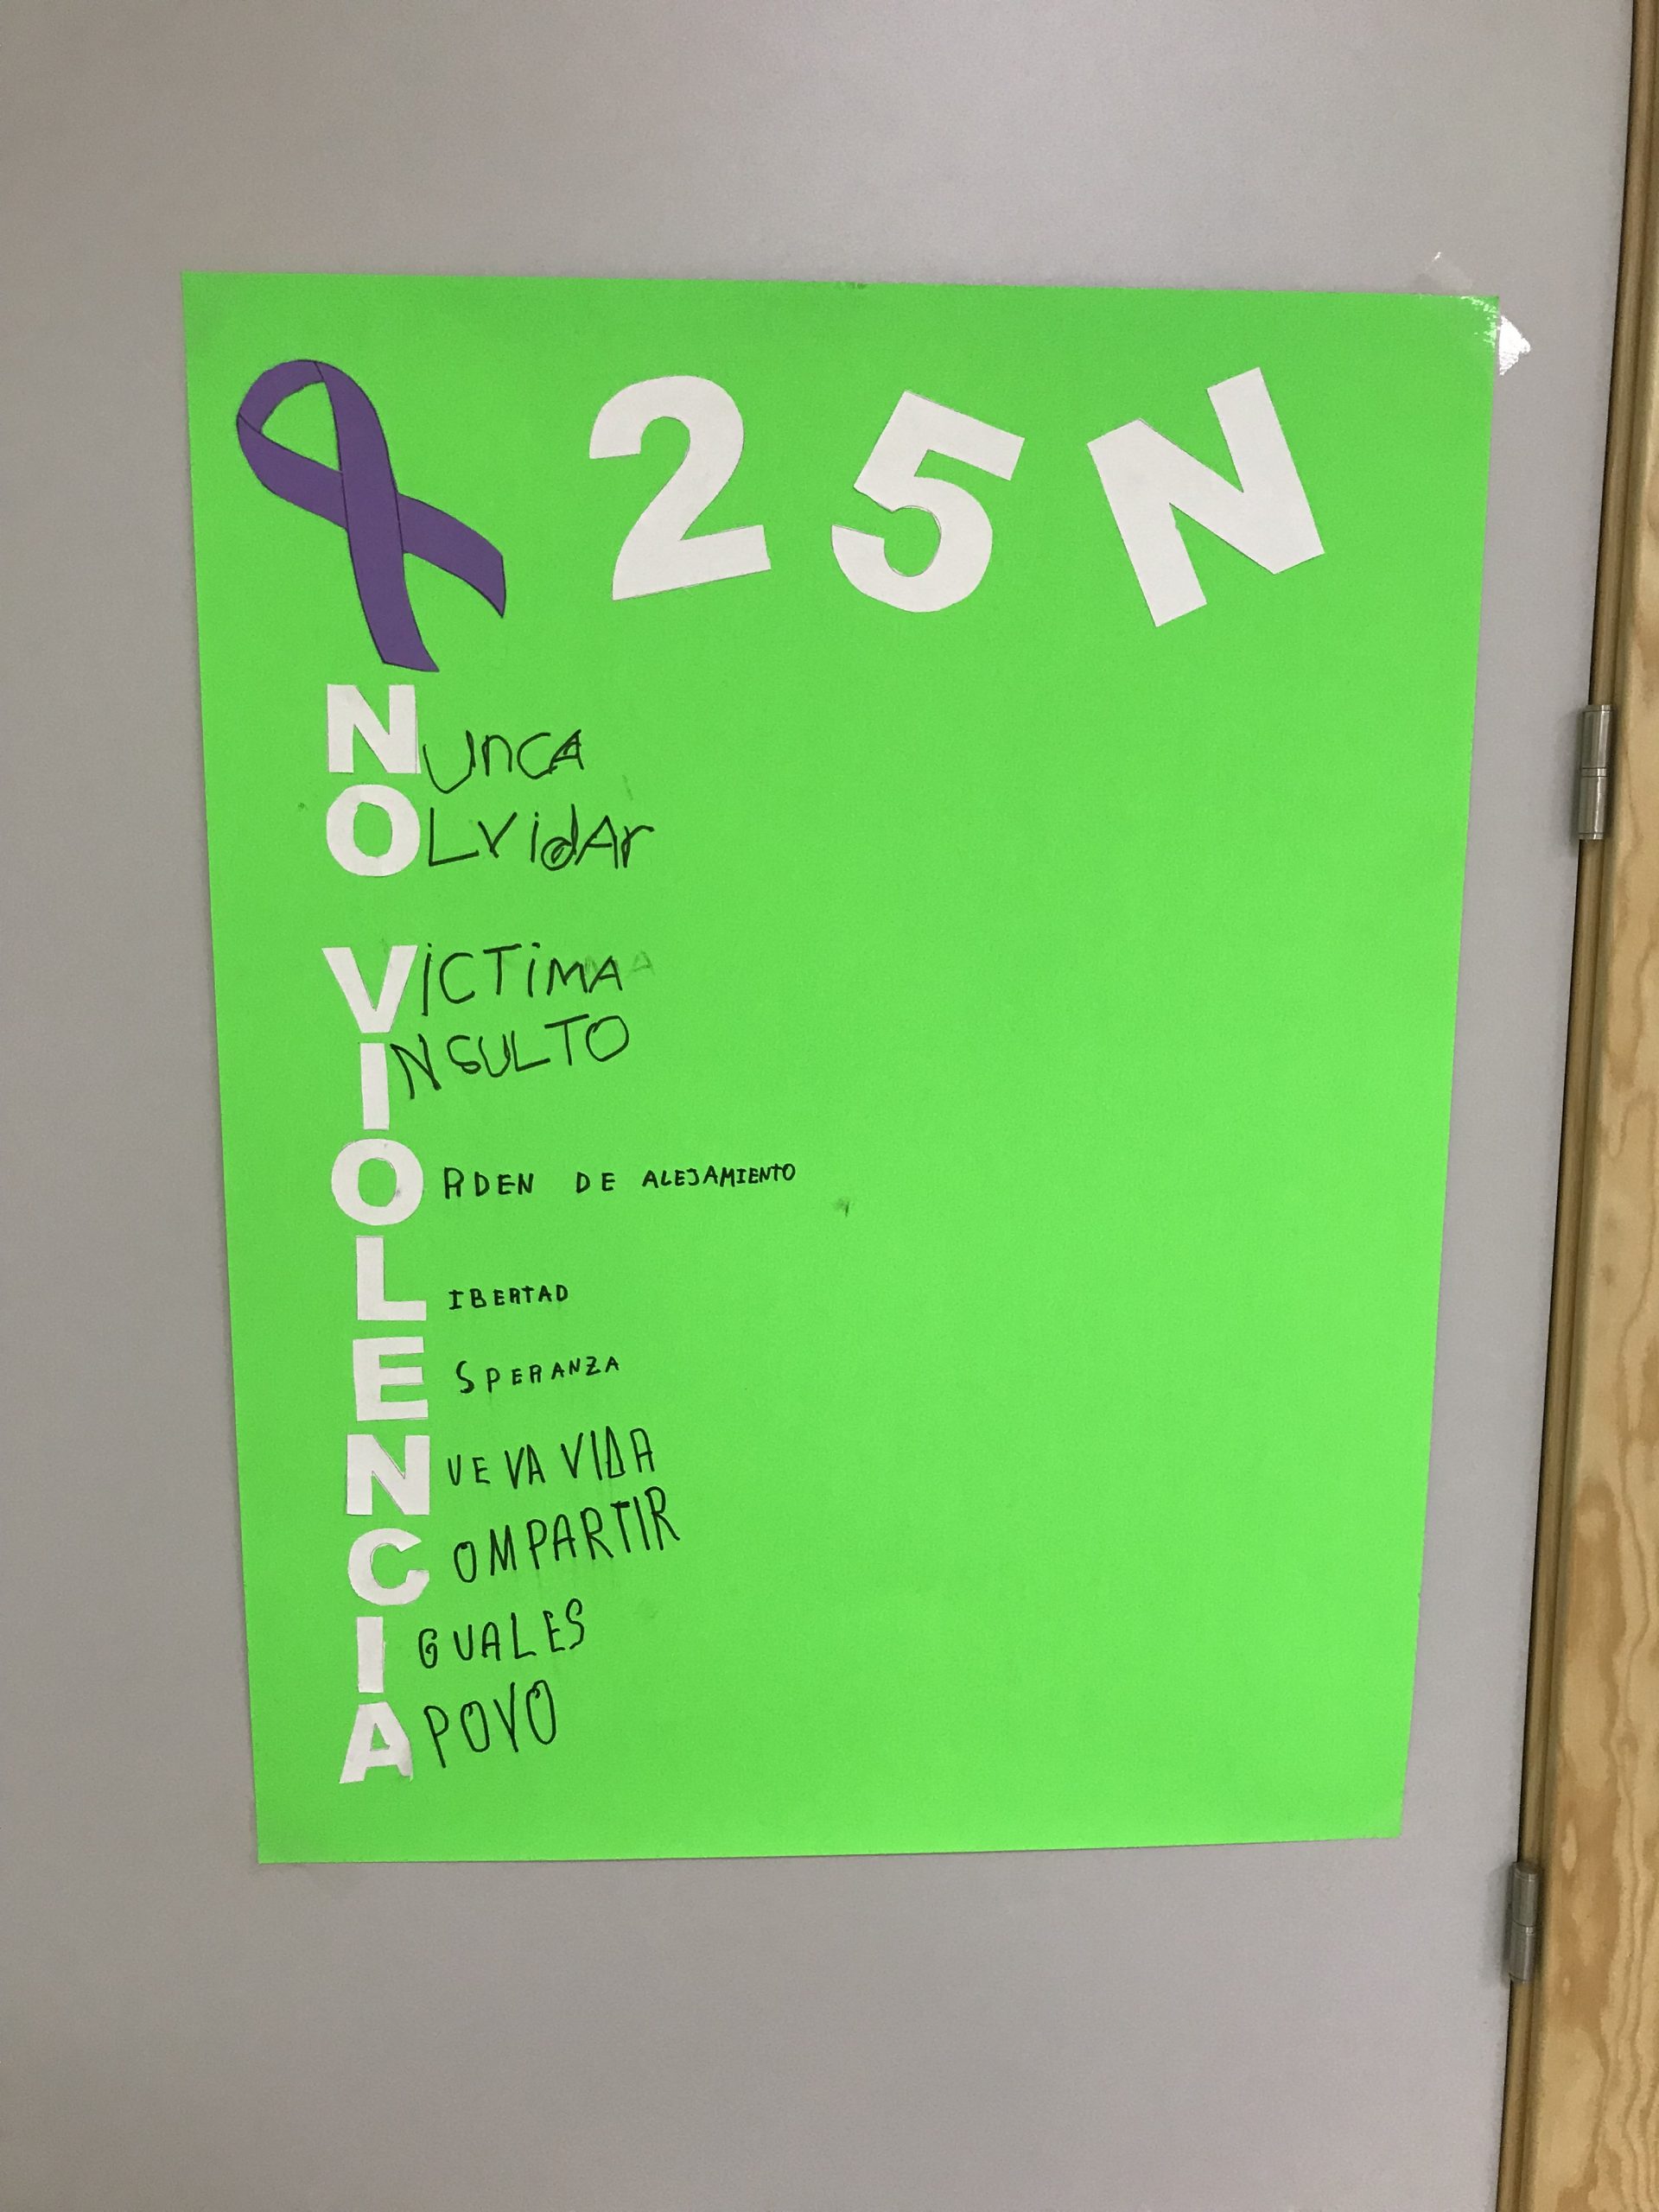 25N
Nunca
OLVidAr
VICTiMA
INSULTO
ORDEN DE ALEJAMIENTO
LIBERTAD
ESPERANZA
NUEVA VIDA
COMPARTIR
IGUALES
APOYO